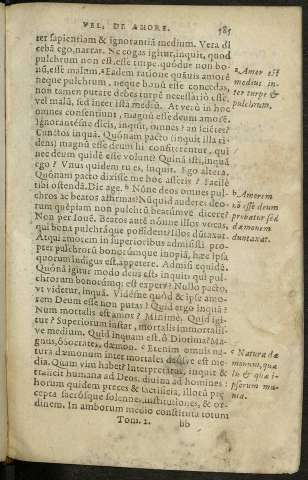 VEL, DE AMORE. 585
ter sapientiam & ignorantiã medium. Vera di
cebã ego, narrat. Ne cogas igitur, inquit, quod
pulchrum non est, esse turpe: quódue non bo-
nũ, esse malum. Eadem ratione quãuis amorẽ
neque pulchrum, neque bonũ esse concedas,
non tamen putare debes turpẽ necessariò esse,
vel malũ, sed inter ista mediũ. At verò in hoc
omnes consentiunt, magnũ esse deum amorẽ.
Ignorantésne dicis, inquit, omnes: an scientes?
Cunctos inquã. Quónam pacto (inquit illa ri-
dens) magnũ esse deum hi consiterentur, qui
nec deum quidẽ esse volunt? Quinã isti, inquã
ego? Vnus quidem tu es, inquit. Ego altera.
Quónam pacto dixisse me hoc asseris? Facilè
tibi ostendã. Dic age. Nóne deos omnes pul-
chros ac beatos asfirmas? Nũquid auderes deo-
rum quẽpiam non pulchrũ beatũmve dicere?
Non per Iouẽ. Beatos autẽ nóne illos vocas,
qui bona pulchráque possident? Illos dũtaxat.
Atqui amorem in superioribus admisisti pro-
pter pulchrorũ bonorúmque inopiã, hæc ipsa
quorum indigus est, appetere. Admisi equidẽ.
Quónã igitur modo deus est, inquit: qui pul-
chrorum bonorúmq; est expers? Nullo pacto,
vt videtur, inquã. Vidésne quòd & ipse amo-
rem Deum esse non putas? Quid ergo inquã?
Num mortalis est amor? Minimè. Quid igi-
tur? Superiorum instar, mortalis immortalis-
ve medium. Quid inquam est ô Diotima? Ma-
gnus, ô Socrates, dæmon. Etenim omnis na-
tura dæmonum inter mortales deósve est me-
dia. Quam vim habet? Interpretatur, inquit &
transfert humana ad Deos, diuina ad homines:
horum quidem preces & sacrificia, illorũ præ-
cepta sacrósque solennes institutiones, & or-
dinem. In amborum medio constituta totum
Tom. 2. bb
a Amor est
medius in-
ter turpe &
pulchrum.
b Amorem
nõ esse deum
probatur sed
dæmonem
duntaxat.
c Natura dæ
monum, quæ
sit & quæ i-
psorum mu-
nia.